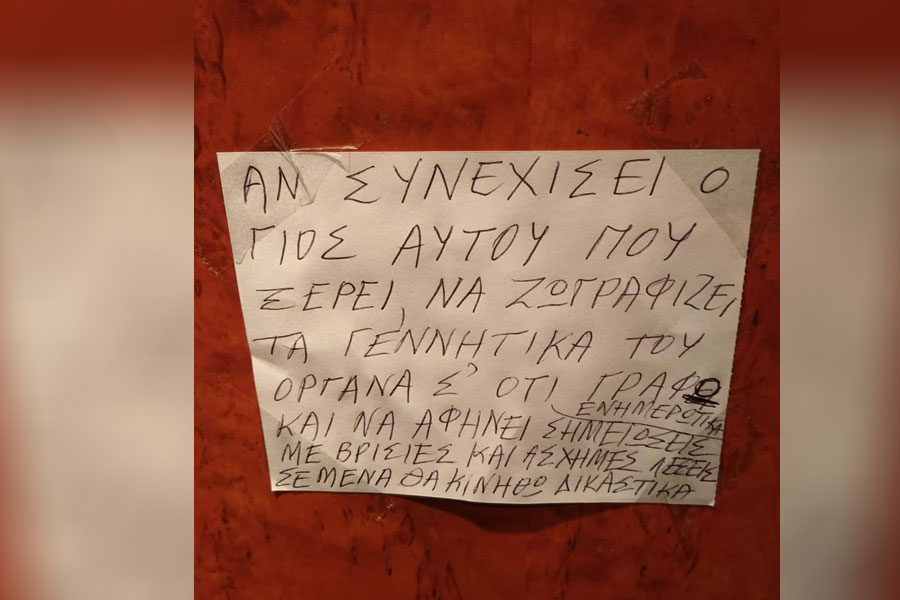 ΑΝ ΣΥΝΕΧΙΣΕΙ Ο
ΓΙΟΣ ΑΥΤΟΥ ΠΟΥ
ΞΕΡΕΙ, ΝΑ ΖΩΓΡΑΦΙΖΕΙ
ΤΑ ΓΕΝΝΗΤΙΚΑ ΤΟΥ
ΟΡΓΑΝΑ Σ' ΟΤΙ ΓΡΑΦΩ
ΕΝΗΜΕΡΩΤΙΚΑ
ΚΑΙ ΝΑ ΑΦΗΝΕΙ ΣΗΜΕΙΩΣΕΙΣ
ΜΕ ΒΡΙΣΙΕΣ ΚΑΙ ΑΣΧΗΜΕΣ ΛΕΞΕΙΣ
ΣΕ ΜΕΝΑ ΘΑ ΚΙΝΗΘΩ ΔΙΚΑΣΤΙΚΑ